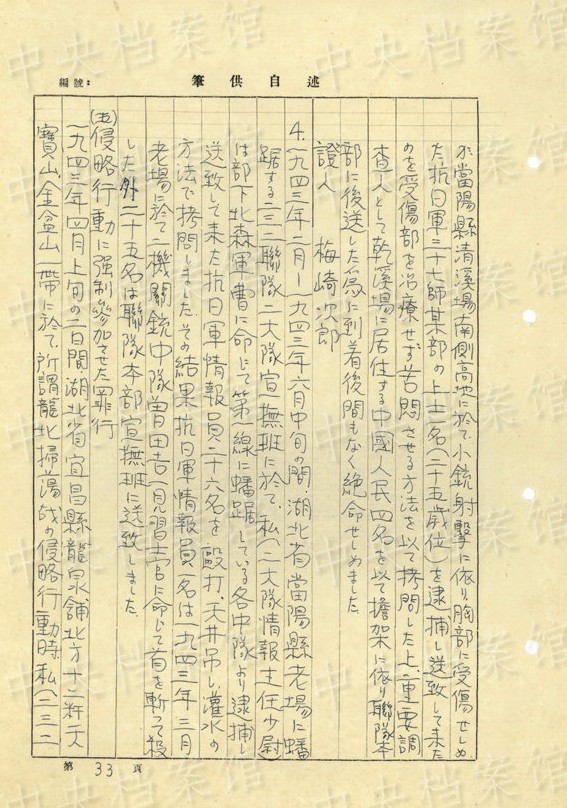 編號：
筆供自述
於當陽縣清溪場南側高地に於て小銃射擊に依り胸部に受傷せしめ
た抗日軍二十七師某部の上士一名(二十五歲位)を逮捕し送致して来た
のを受傷部を治療せず苦悶させる方法を以て拷問した上重要調
查人として乾溪場に居住する中國人民四名を以て擔架に依り聯隊本
部に後送した為に到着後間もなく絶命せしめました
證人 梅崎次郎
4.一九四三年二月―一九四三年六月中旬の間湖北省當陽縣老場に蟠
踞する二三二聯隊二大隊宣撫班に於て、私(二大隊情報主任少尉)
は部下北森軍曹に命じて第一線に蟠踞している各中隊より逮捕し
送致して来た抗日軍情報員二十六名を毆打、天井吊し、灌水の
方法で拷問しました その結果抗日軍情報員一名は一九四三年三月
老場に於て二機關銃中隊曽田吉一見習士官に命じて首を斬って殺
した外二十五名は聯隊本部宣撫班に送致しました
(五)侵略行動に强制參加させた罪行
一九四三年四月上旬の二日間、湖北省宜昌縣龍泉舖北方十二粁天
寶山、金盆山一帶に於て、所謂龍北掃蕩戰の侵略行動時、私(二三二
第 33 頁
中央档案馆